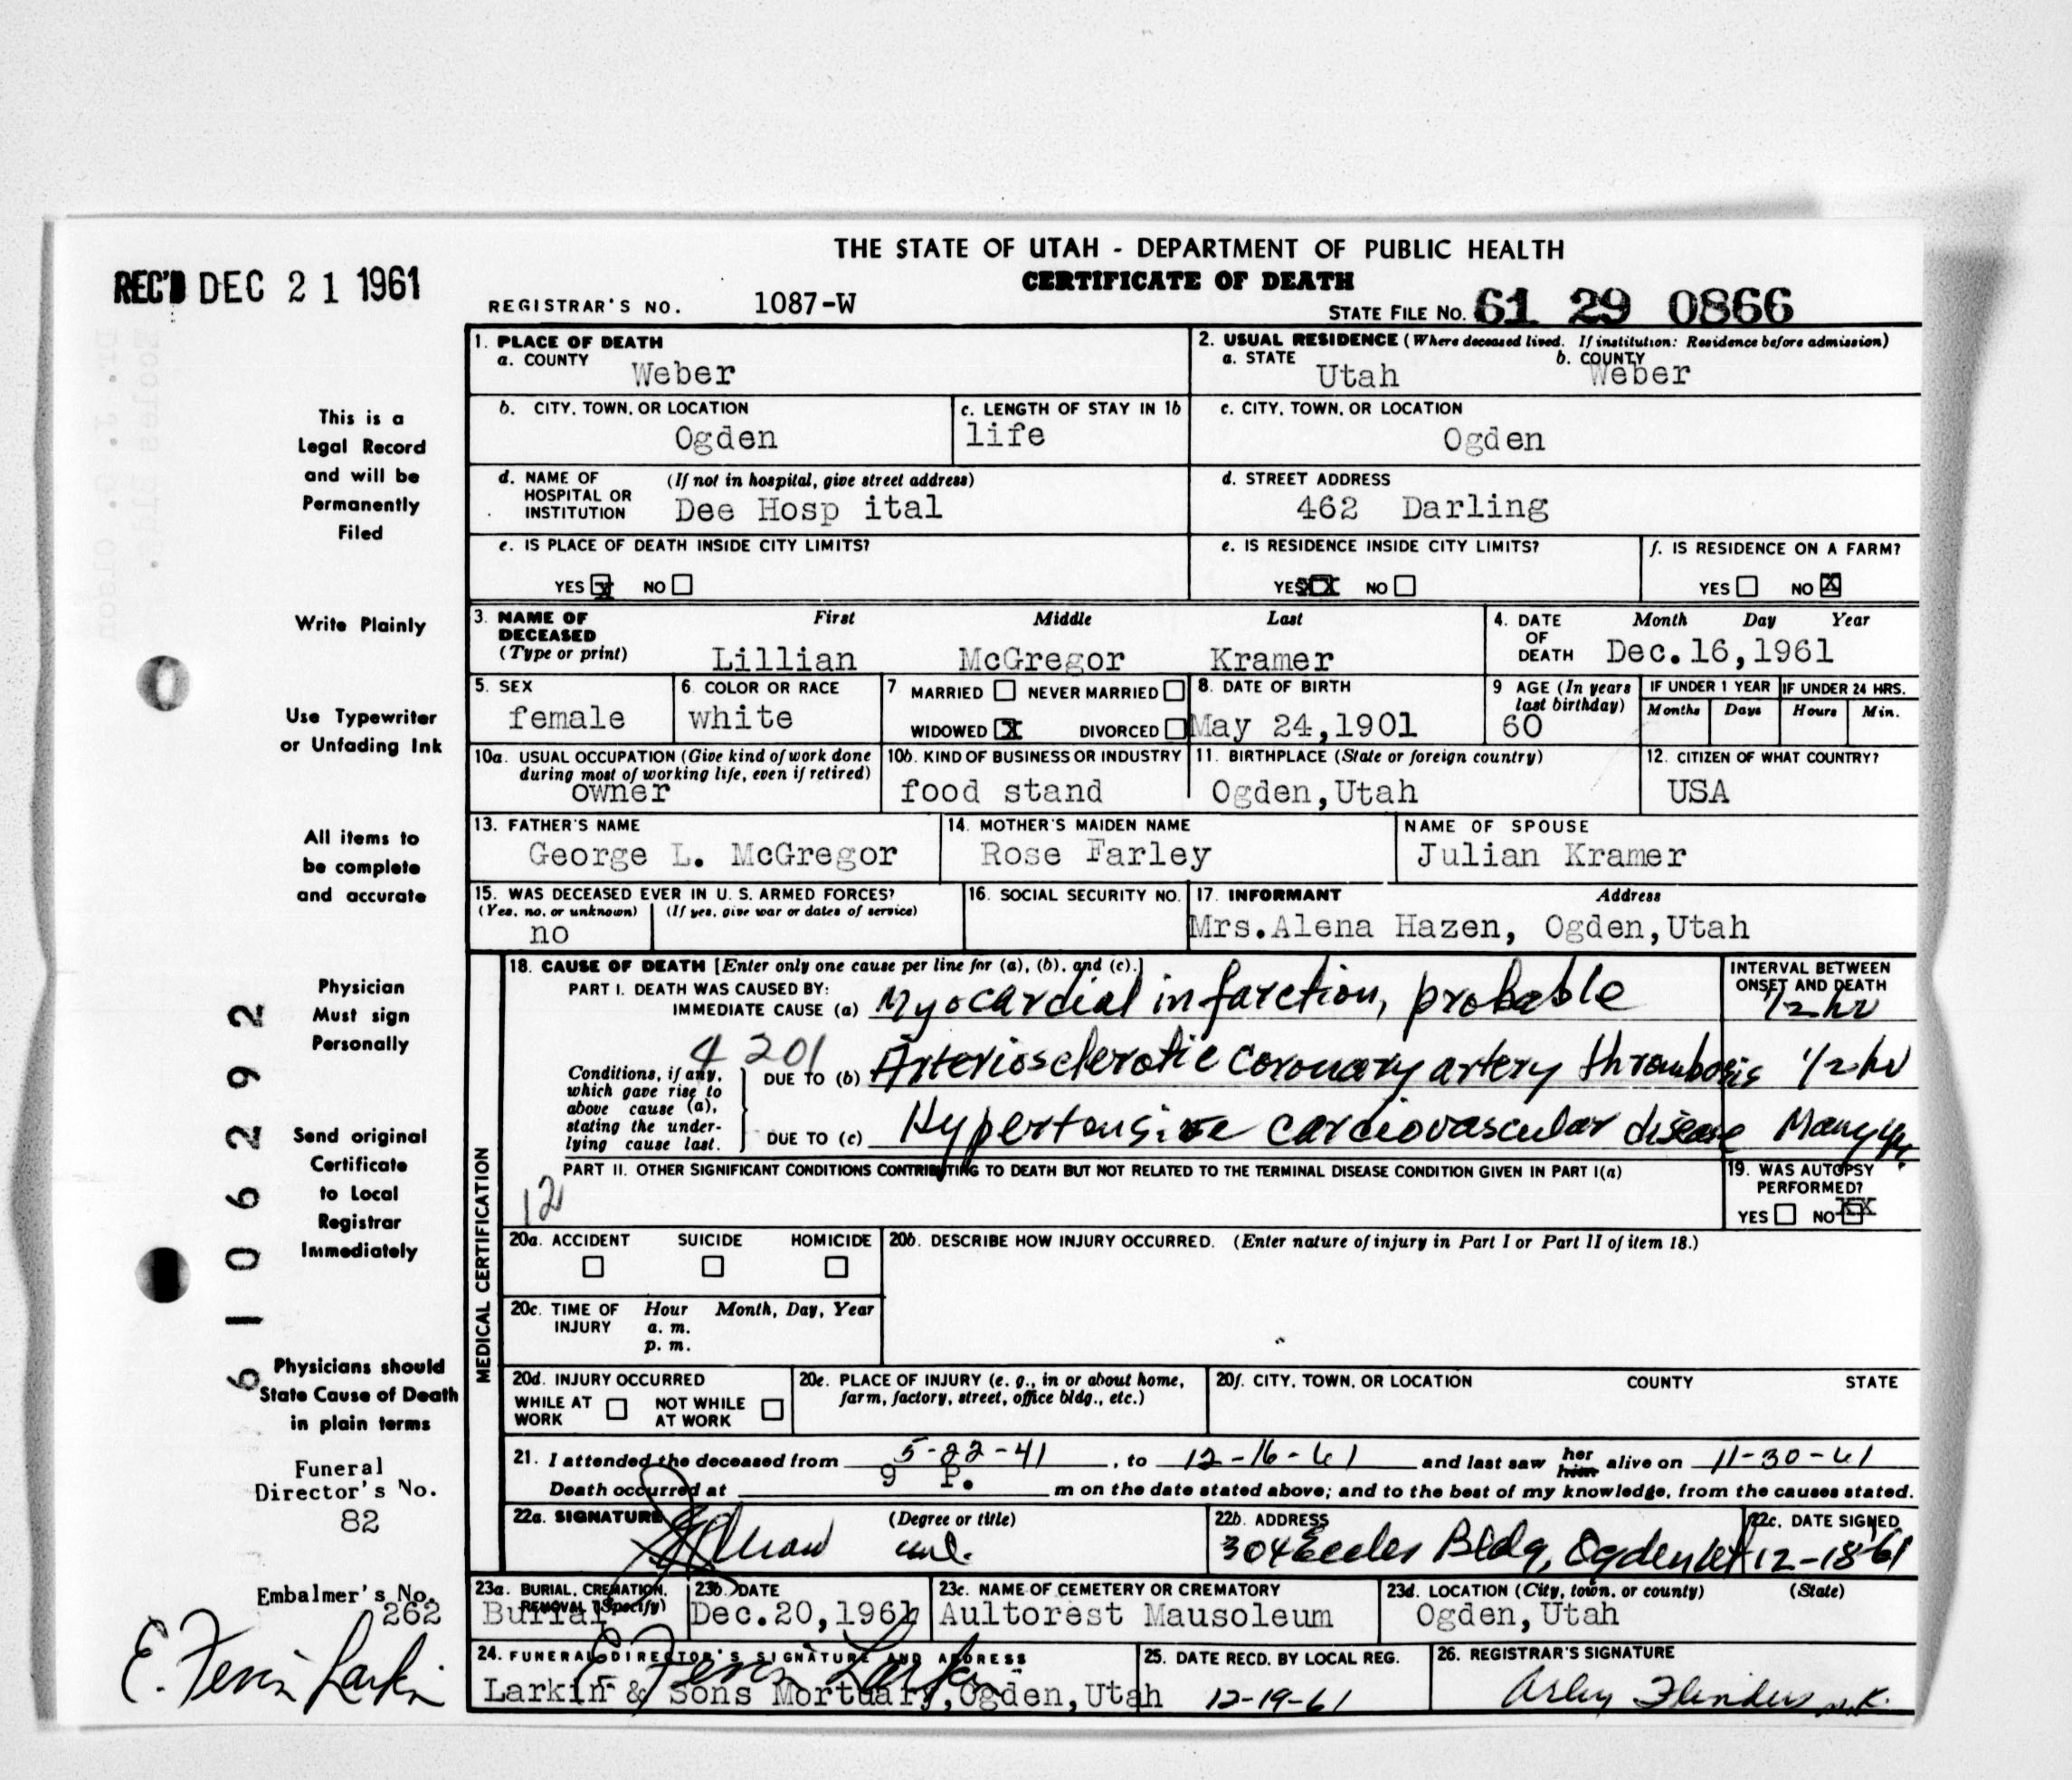 THE STATE OF UTAH - DEPARTMENT OF PUBLIC HEALTH
CERTIFICATE OF DEATH
REC'D DEC 21 1961
REGISTRAR'S NO. 1087-W
STATE FILE NO. 61 29 0866
This is a
Legal Record
and will be
Permanently
Filed
Write Plainly
Use Typewriter
or Unfading Ink
All items to
be complete
and accurate
Physician
Must sign
Personally
Send original
Certificate
to Local
Registrar
Immediately
Physicians should
State Cause of Death
in plain terms
Funeral
Director's No.
82
Embalmer's No.
262
E. Ferrin Larkin
6106292
1. PLACE OF DEATH
a. COUNTY
Weber
2. USUAL RESIDENCE (Where deceased lived. If institution: Residence before admission)
a. STATE b. COUNTY
Utah Weber
b. CITY, TOWN, OR LOCATION
Ogden
c. LENGTH OF STAY IN 1b
life
c. CITY, TOWN, OR LOCATION
Ogden
d. NAME OF (If not in hospital, give street address)
HOSPITAL OR
INSTITUTION Dee Hosp ital
d. STREET ADDRESS
462 Darling
e. IS PLACE OF DEATH INSIDE CITY LIMITS?
YES X NO
e. IS RESIDENCE INSIDE CITY LIMITS?
YES XX NO
f. IS RESIDENCE ON A FARM?
YES NO X
3. NAME OF First Middle Last
DECEASED
(Type or print) Lillian McGregor Kramer
4. DATE Month Day Year
OF
DEATH Dec.16,1961
5. SEX
female
6. COLOR OR RACE
white
7 MARRIED NEVER MARRIED
WIDOWED X DIVORCED
8. DATE OF BIRTH
May 24,1901
9 AGE (In years
last birthday)
60
IF UNDER 1 YEAR IF UNDER 24 HRS.
Months Days Hours Min.
10a. USUAL OCCUPATION (Give kind of work done
during most of working life, even if retired)
owner
10b. KIND OF BUSINESS OR INDUSTRY
food stand
11. BIRTHPLACE (State or foreign country)
Ogden,Utah
12. CITIZEN OF WHAT COUNTRY?
USA
13. FATHER'S NAME
George L. McGregor
14. MOTHER'S MAIDEN NAME
Rose Farley
NAME OF SPOUSE
Julian Kramer
15. WAS DECEASED EVER IN U. S. ARMED FORCES?
(Yes, no, or unknown) (If yes, give war or dates of service)
no
16. SOCIAL SECURITY NO.
17. INFORMANT Address
Mrs.Alena Hazen, Ogden,Utah
MEDICAL CERTIFICATION
18. CAUSE OF DEATH [Enter only one cause per line for (a), (b), and (c).]
PART I. DEATH WAS CAUSED BY:
IMMEDIATE CAUSE (a) Myocardial infarction, probable
INTERVAL BETWEEN
ONSET AND DEATH
1/2 hr
4 201
Conditions, if any,
which gave rise to
above cause (a),
stating the under-
lying cause last.
DUE TO (b) Arteriosclerotic coronary artery thrombosis 1/2 hr
DUE TO (c) Hypertensive cardiovascular disease Many yr.
PART II. OTHER SIGNIFICANT CONDITIONS CONTRIBUTING TO DEATH BUT NOT RELATED TO THE TERMINAL DISEASE CONDITION GIVEN IN PART I(a)
12
19. WAS AUTOPSY
PERFORMED?
YES NO XX
20a. ACCIDENT SUICIDE HOMICIDE
20b. DESCRIBE HOW INJURY OCCURRED. (Enter nature of injury in Part I or Part II of item 18.)
20c. TIME OF Hour Month, Day, Year
INJURY a. m.
p. m.
20d. INJURY OCCURRED
WHILE AT NOT WHILE
WORK AT WORK
20e. PLACE OF INJURY (e. g., in or about home,
farm, factory, street, office bldg., etc.)
20f. CITY, TOWN, OR LOCATION COUNTY STATE
21. I attended the deceased from 5-22-41, to 12-16-61 and last saw her him alive on 11-30-61
Death occurred at 9 P. m on the date stated above; and to the best of my knowledge, from the causes stated.
22a. SIGNATURE (Degree or title)
22b. ADDRESS
304 Eccles Bldg, Ogden Ut
22c. DATE SIGNED
12-18-61
23a. BURIAL, CREMATION,
REMOVAL (Specify)
Burial
23b. DATE
Dec.20,1961
23c. NAME OF CEMETERY OR CREMATORY
Aultorest Mausoleum
23d. LOCATION (City, town, or county) (State)
Ogden,Utah
24. FUNERAL DIRECTOR'S SIGNATURE AND ADDRESS
E. Ferrin Larkin
Larkin & Sons Mortuary,Ogden,Utah
25. DATE RECD. BY LOCAL REG.
12-19-61
26. REGISTRAR'S SIGNATURE
Arley Flinders